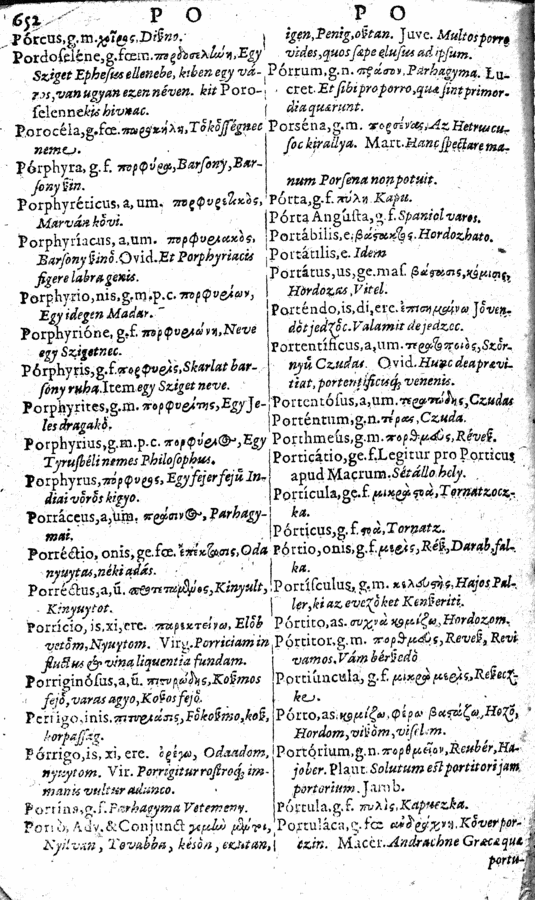 652 P O P O
Pórcus,g.m. χοῖρος, Diſno.
Pordoſeléne,g.fœm. πορδοσελήνη, Egy
Sziget Epheſus ellenebe, kiben egy vá-
ros, van ugyan ezen néven. kit Poro-
ſelennekis hivnac.
Porocéla, g.fœ. πωροκήλη, Tőkösségnec
neme.
Pórphyra, g.f. πορφύρα, Barſony, Bar-
ſony ßin.
Porphyréticus, a, um. πορφυρετικὸς,
Marván kővi.
Porphyríacus, a, um. πορφυριακὸς,
Barſony ßinő. Ovid. Et Porphyriacis
figere labra genis.
Porphyrio, nis, g.m.p.c. πορφυρίων,
Egy idegen Madar.
Porphyrióne, g.f. πορφυριώνη, Neve
egy Szigetnec.
Pórphyris, g.f. πορφυρὶς, Skarlat bar-
ſony ruha. Item egy Sziget neve.
Porphyrites, g.m. πορφυρίτης, Egy Je-
les dragakő.
Porphyrius, g.m.p.c. πορφύριος, Egy
Tyrusbéli nemes Philoſophus.
Porphyrus, πόρφυρος, Egy fejer fejű In-
diai vőrős kigyo.
Porráceus, a, um. πράσινος, Parhagy-
mai.
Porréctio, onis, ge.fœ. ἐπέκτασις, Oda
nyuytas, néki adás.
Porréctus, a, ũ. Kinyult,
Kinyuytot.
Porrício, is, xi, ere. παρεκτείνω, Előb
vetőm, Nyuytom. Virg. Porriciam in
fluctus & vina liquentia fundam.
Porriginóſus, a, ũ. πιτυρώδης, Koßmos
fejő, varas agyo, Koßos fejő.
Porrigo, inis. πιτυρίασις, Főkoßmo, koß,
korpaſſág.
Pórrigo, is, xi, ere. ὀρέγω, Odaadom,
nyuytom. Vir. Porrigitur roſtroq́; im-
manis vultur adunco.
Porrina, g.f. Parhagyma Vetemeny.
Porrò, Adv. & Conjunct
Nyilván, Tovabba, késön, ezutan,
igen, Penig, oßtan. Juve. Multos porrò
vides, quos ſæpe eluſus ad ipſum.
Pórrum, g.n. πράσον, Parhagyma. Lu-
cret. Et ſibi proporro, quæ ſint primor-
dia quærunt.
Porséna, g.m. πορσένας, Az Hetruſcu-
ſoc kirallya. Mart. Hanc ſpectare ma-
num Porſena non potuit.
Pórta, g.f. πύλη Kapu.
Pórta Anguſta, g.f. Spaniol varos.
Portábilis, e; βάσακτος. Hordozhato.
Portátilis, e. Idem
Portátus, us, ge.maſ. βάσασις, κόμισις,
Hordozas, Vitel.
Porténdo, is, di, ere. ἐπισημαίνω Jőven-
dőt jedzőc. Valamit dejedzec.
Portentíficus, a, um. τερατοποιὸς, Szőr-
nyű Czudas. Ovid. Hunc dea prævi-
tiat, portentificisq́; venenis.
Portentóſus, a, um. τερατώδης, Czudas
Porténtum, g.n. τέρας, Czuda.
Porthmeús, g.m. πορθμεὺς, Réveß.
Porticátio, ge.f. Legitur pro Porticus
apud Macrum. Sétálló hely.
Portícula, ge.f. μικρὰ στοὰ, Tornatzocz-
ka.
Pórticus, g.f. στοὰ, Tornatz.
Pórtio, onis, g.f. μερὶς, Réß, Darab, fal-
ka.
Portíſculus, g.m. κελευστὴς, Hajos Pal-
ler, ki az evezőket Kenßeriti.
Pórtito, as. συχνὰ κομίζω, Hordozom.
Pórtitor, g.m. πορθμεὺς, Reveß, Revi
vamos. Vám bérßedő
Portiúncula, g.f. μικρὰ μερὶς, Reßecz-
ke.
Pórto, as. κομίζω, φέρω βαστάζω, Hozō,
Hordom, vißōm, viſelem.
Portórium, g.n. πορθμεῖον, Reubér, Ha-
jober. Plaut. Solutum eſt portitori jam
portorium. Jamb.
Pórtula, g.f. πυλὶς, Kapuczka.
Portuláca, g.fœ ἀνδράχνη. Kőver por-
czin. Macer. Andrachne Græca quæ
portu-